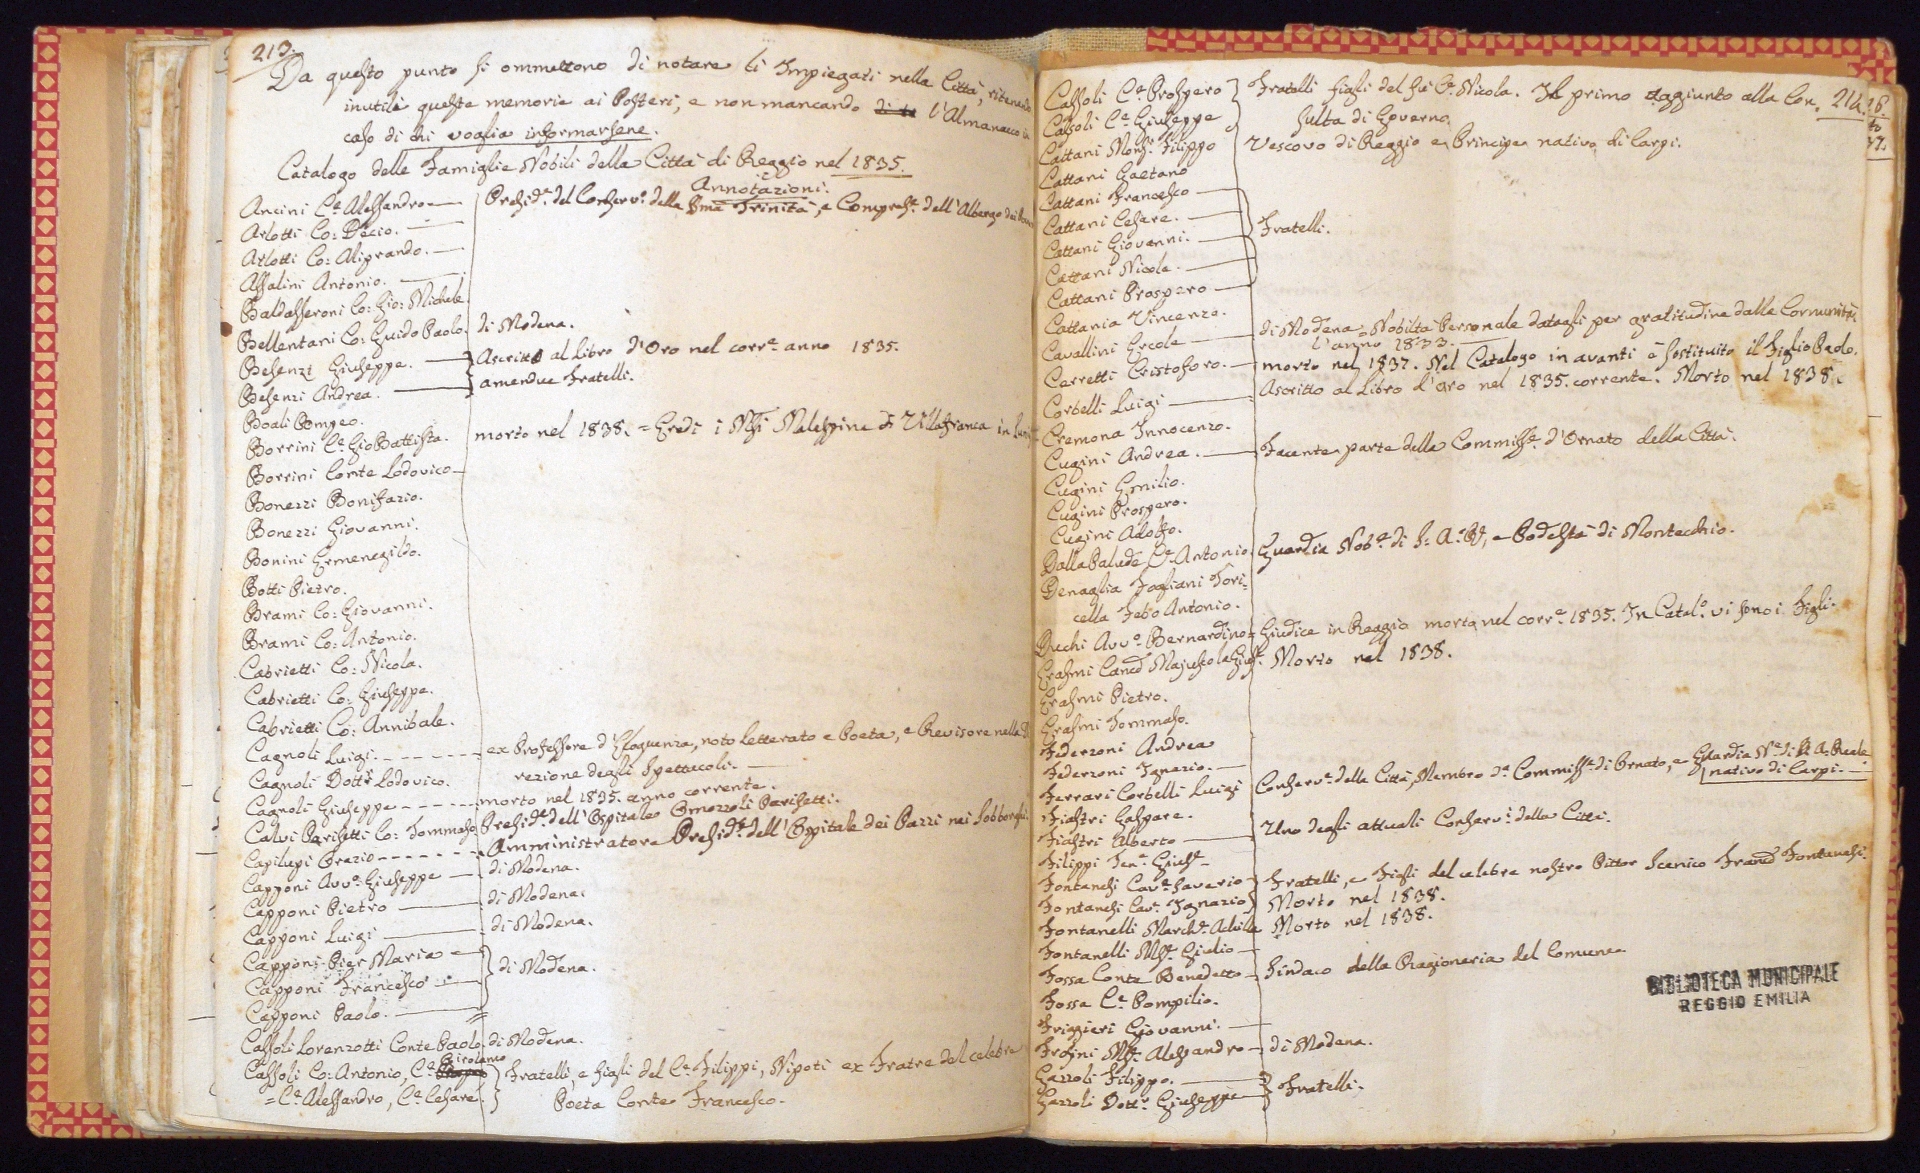 213.
Da questo punto si ommettono di notare li Impiegati nella Città, ritenendo
inutili queste memorie ai Posteri, e non mancando l'Almanacco in
caso di chi voglia informarsene.
Catalogo delle Famiglie Nobili della Città di Reggio nel 1835.
Annotazioni.
Ancini Ce. Alessandro — Preside. del Conservo. della Sma Trinità, e Compresse. dell'Albergo dei
Arlotti Co: Decio. —
Arlotti Co: Aliprando. —
Assalini Antonio. —
Baldasseroni Co: Gio: Michele.
Bellentani Co: Guido Paolo. di Modena.
Besenzi Giuseppe. — Ascritto al Libro d'Oro nel corre. anno 1835.
Besenzi Andrea. — amendue Fratelli.
Boali Pompeo.
Borrini Ce. Gio Battista. morto nel 1838. = Eredi i Msi Malespina di Villafranca in
Borrini Conte Lodovico —
Bonezzi Bonifazio.
Bonezzi Giovanni.
Bonini Ermenegildo.
Botti Pietro.
Brami Co: Giovanni.
Brami Co: Antonio.
Cabrietti Co: Nicola.
Cabrietti Co: Giuseppe.
Cabrietti Co: Annibale.
Cagnoli Luigi. - - - - - ex Professore d'Eloquenza, noto Letterato e Poeta, e Revisore nella Di
rezione degli Spettacoli. —
Cagnoli Dottr. Lodovico.
Cagnoli Giuseppe - - - - morto nel 1835. anno corrente.
Calvi Parisetti Co: Tommaso Preside. dell'Ospitale Omozzoli Parisetti.
Capilupi Orazio - - - - - - Amministratore Preside. dell'Ospitale dei Pazzi nei Sobborghi.
Capponi Avvo. Giuseppe — di Modena.
Capponi Pietro — di Modena.
Capponi Luigi — di Modena.
Capponi Pier Maria —
Capponi Francesco — di Modena.
Capponi Paolo. —
Cassoli Lorenzotti Conte Paolo. di Modena.
Girolamo
Cassoli Co: Antonio, Ce. Fratelli, e figli del Ce. Filippi, Nipoti ex Fratre del celebre
= Ce. Alessandro, Ce. Cesare. Poeta Conte Francesco.
214.
Cassoli Ce. Prospero Fratelli figli del fù Ce. Nicola. Il primo aggiunto alla Con.
Cassoli Ce. Giuseppe sulta di Governo.
Cattani Monsr. Filippo Vescovo di Reggio e Principe nativo di Carpi.
Cattani Gaetano
Cattani Francesco —
Cattani Cesare. — Fratelli.
Cattani Giovanni. —
Cattani Nicola. —
Cattani Prospero —
Cattania Vincenzo.
Cavallini Ercole — di Modena = Nobiltà Personale datagli per gratitudine dalle Comunità
l'anno 1833. —
Carretti Cristoforo. — morto nel 1837. Nel Catalogo in avanti è sostituito il Figlio Paolo.
Corbelli Luigi — Ascritto al Libro d'Oro nel 1835. corrente. Morto nel 1838.
Cremona Innocenzo.
Cugini Andrea. — Facente parte della Commisse. d'Ornato della Città.
Cugini Emilio.
Cugini Prospero.
Cugini Adolfo.
Dalla Palude Ce. Antonio. Guardia Nobe. di S: A: R., e Podestà di Montecchio.
Denaglia Fogliani Tori=
cella Febo Antonio.
Ducchi Avvo. Bernardino = Giudice in Reggio morto nel corre. 1835. In Catalo. vi sono i Figli.
Erasmi Cancl Majuscola Giuse. Morto nel 1838.
Erasmi Pietro.
Erasmi Tommaso.
Federzoni Andrea
Federzoni Ignazio. —
Ferrari Corbelli Luigi Conserve. della Città, Membro da. Commisse. di Ornato, e Guardia Ne. di S. A. Reale
nativo di Carpi. —
Fiastri Gaspare.
Fiastri Alberto — Uno degli attuali Conservi. della Città.
Filippi Tene. Giuse. —
Fontanesi Cave. Saverio Fratelli, e Figli del celebre nostro Pittor Scenico Franco Fontanesi.
Fontanesi Cave. Ignazio Morto nel 1838.
Fontanelli Marche. Achille Morto nel 1838.
Fontanelli Mse. Giulio —
Fossa Conte Benedetto — Sindaco della Ragioneria del Comune
Fossa Ce. Pompilio.
Friggieri Giovanni. —
Frosini Mse. Alessandro — di Modena.
Gazzoli Filippo. — Fratelli.
Gazzoli Dottr. Giuseppe —
BIBLIOTECA MUNICIPALE
REGGIO EMILIA